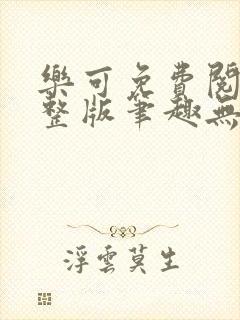 樂可免費閱
整版筆趣無
浮雲莫生